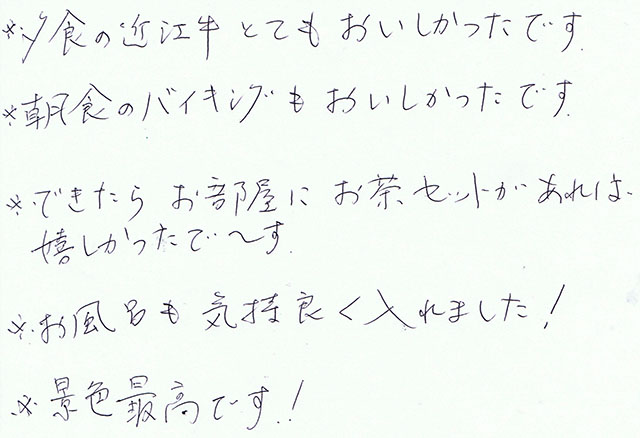 ※夕食の近江牛とてもおいしかったです.
※朝食のバイキングもおいしかったです.
※できたら お部屋に お茶セットがあれば
嬉しかったで〜す.
※お風呂も 気持良く入れました!
※景色最高です!